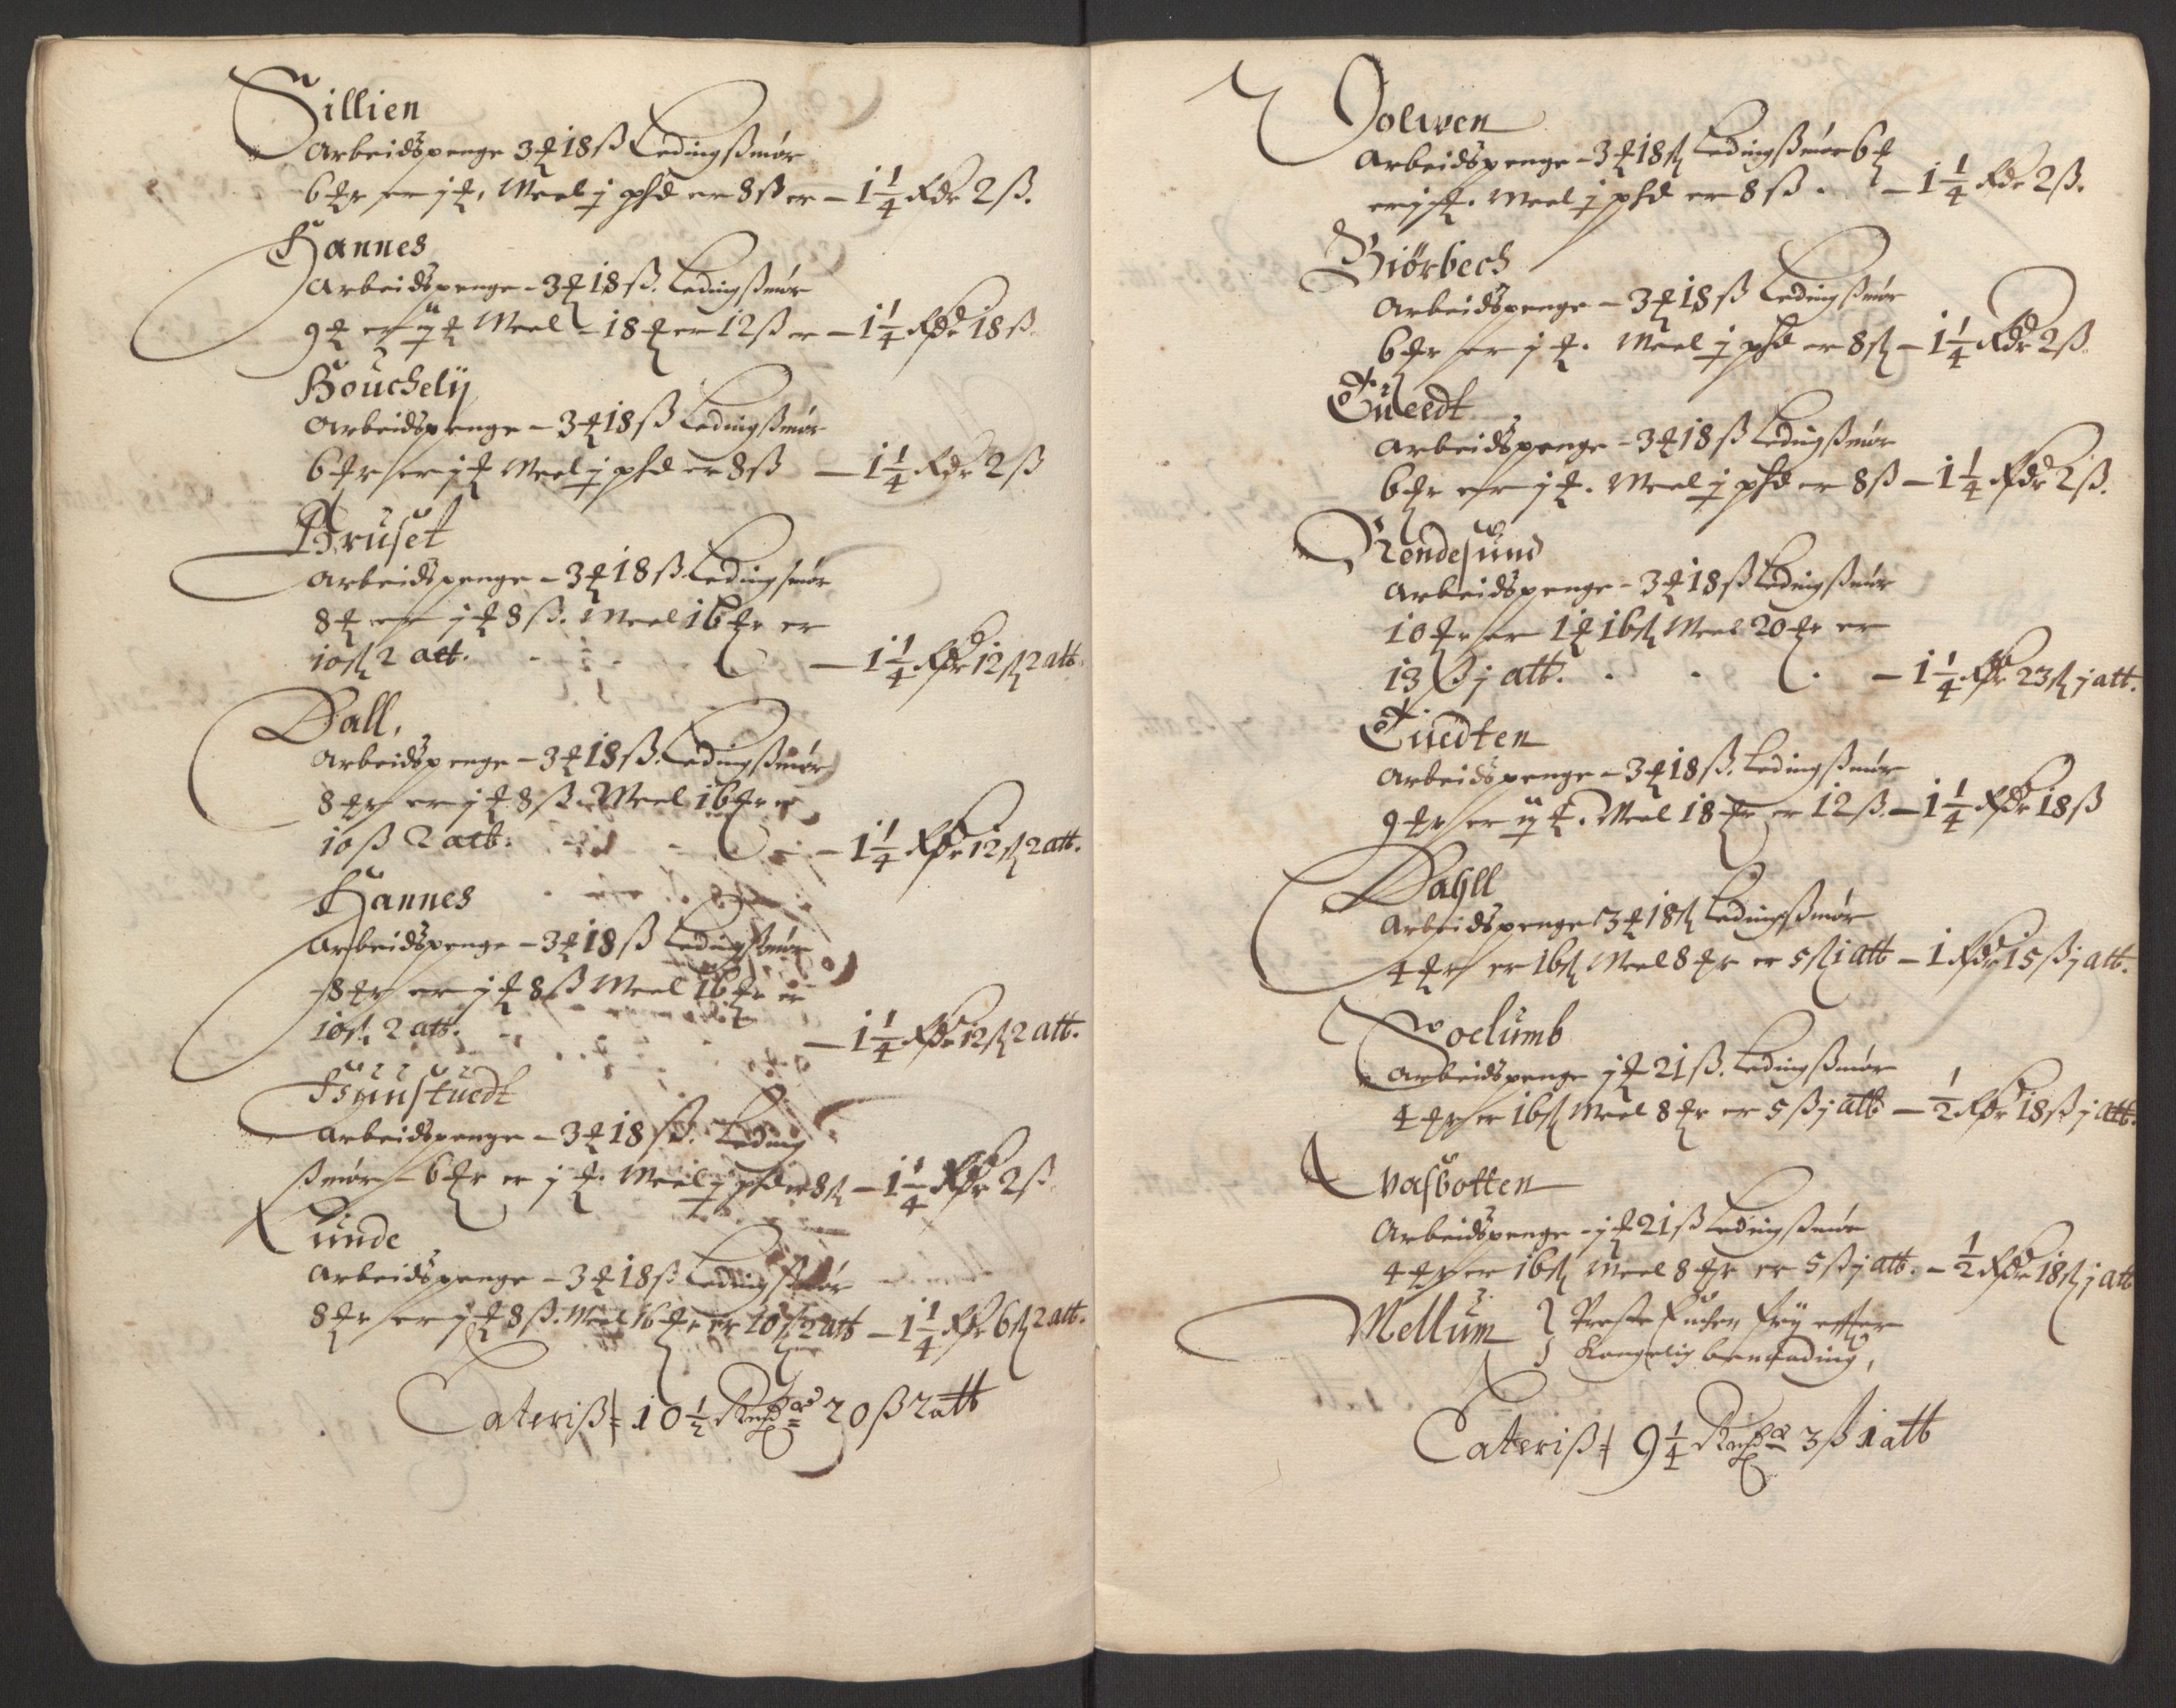 Sillien
Arbeidspenge 3 ℔ 18 ß Ledingßmør
6 ℔r er j ℔. Meel j phd er 8 ß er – 1 1/4 Rdr 2 ß.
Hannes
Arbeidspenge – 3 ℔ 18 ß. Ledingßmør
9 ℔ er ij ℔ Meel – 18 ℔ er 12 ß er – 1 1/4 Rdr 18 ß.
Bouchelij
Arbeidspenge – 3 ℔ 18 ß Ledingßmør
6 ℔r er j ℔ Meel j phd er 8 ß – 1 1/4 Rdr 2 ß
Bruset
Arbeidspenge – 3 ℔ 18 ß Ledingsmør
8 ℔ er j ℔ 8 ß. Meel 16 ℔r er
10 ß 2 att. – 1 1/4 Rdr 12 ß 2 att.
Dall,
Arbeidspenge – 3 ℔ 18 ß. Ledingßmør
8 ℔r er j ℔ 8 ß. Meel 16 ℔r er
10 ß 2 att. – 1 1/4 Rdr 12 ß 2 att.
Hannes
Arbeidspenge – 3 ℔ 18 ß Ledingßmør
8 ℔r er j ℔ 8 ß Meel 16 ℔r er
10 ß. 2 att. – 1 1/4 Rdr 12 ß 2 att.
Arbeidspenge – 3 ℔ 18 ß. Leding
ßmør – 6 ℔r er j ℔. Meel j phd er 8 ß – 1 1/4 Rdr 2 ß
Lunde
Arbeidspenge – 3 ℔ 18 ß Ledingßmør
8 ℔r er j ℔ 8 ß. Meel 16 ℔r er 10 ß 2 att – 1 1/4 Rdr 6 ß 2 att.
Lateriß 10 1/2 Rixdr 20 ß 2 att
Dolwen
Arbeidspenge – 3 ℔ 18 ß Ledingßmør 6 ℔
er j ℔. Meel j phd er 8 ß. – 1 1/4 Rdr 2 ß.
Biørbech
Arbeidspenge – 3 ℔ 18 ß Ledingßmør
6 ℔r er j ℔. Meel j phd er 8 ß – 1 1/4 Rdr 2 ß.
Tueedt
Arbeidspenge – 3 ℔ 18 ß Ledingßmør
6 ℔r er j ℔. Meel j phd er 8 ß – 1 1/4 Rdr 2 ß.
Rendesund
Arbeidspenge – 3 ℔ 18 ß Ledingßmør
10 ℔r er 1 ℔ 16 ß Meel 20 ℔r er
13 ß j att. – 1 1/4 Rdr 23 ß j att.
Tuedten
Arbeidspenge – 3 ℔ 18 ß. Ledingßmør
9 ℔r er ij ℔. Meel 18 ℔r er 12 ß. – 1 1/4 Rdr 18 ß
Dahll
Arbeidspenge 3 ℔ 18 ß Ledingßmør
4 ℔r er 16 ß Meel 8 ℔r er 5 ß 1 att – 1 Rdr 15 ß j att.
Soelumb
Arbeidspenge j ℔ 21 ß. Ledingßmør
4 ℔r er 16 ß Meel 8 ℔r er 5 ß j att – 1/2 Rdr 18 ß j att.
Arbeidspenge – j ℔ 21 ß Ledingßmør
4 ℔r er 16 ß Meel 8 ℔r er 5 ß j att. – 1/2 Rdr 18 ß j att
Mellum } Preste Encken frij effter
Kongelig benaading,
Lateriß 9 1/4 Rixdr 3 ß 1 att